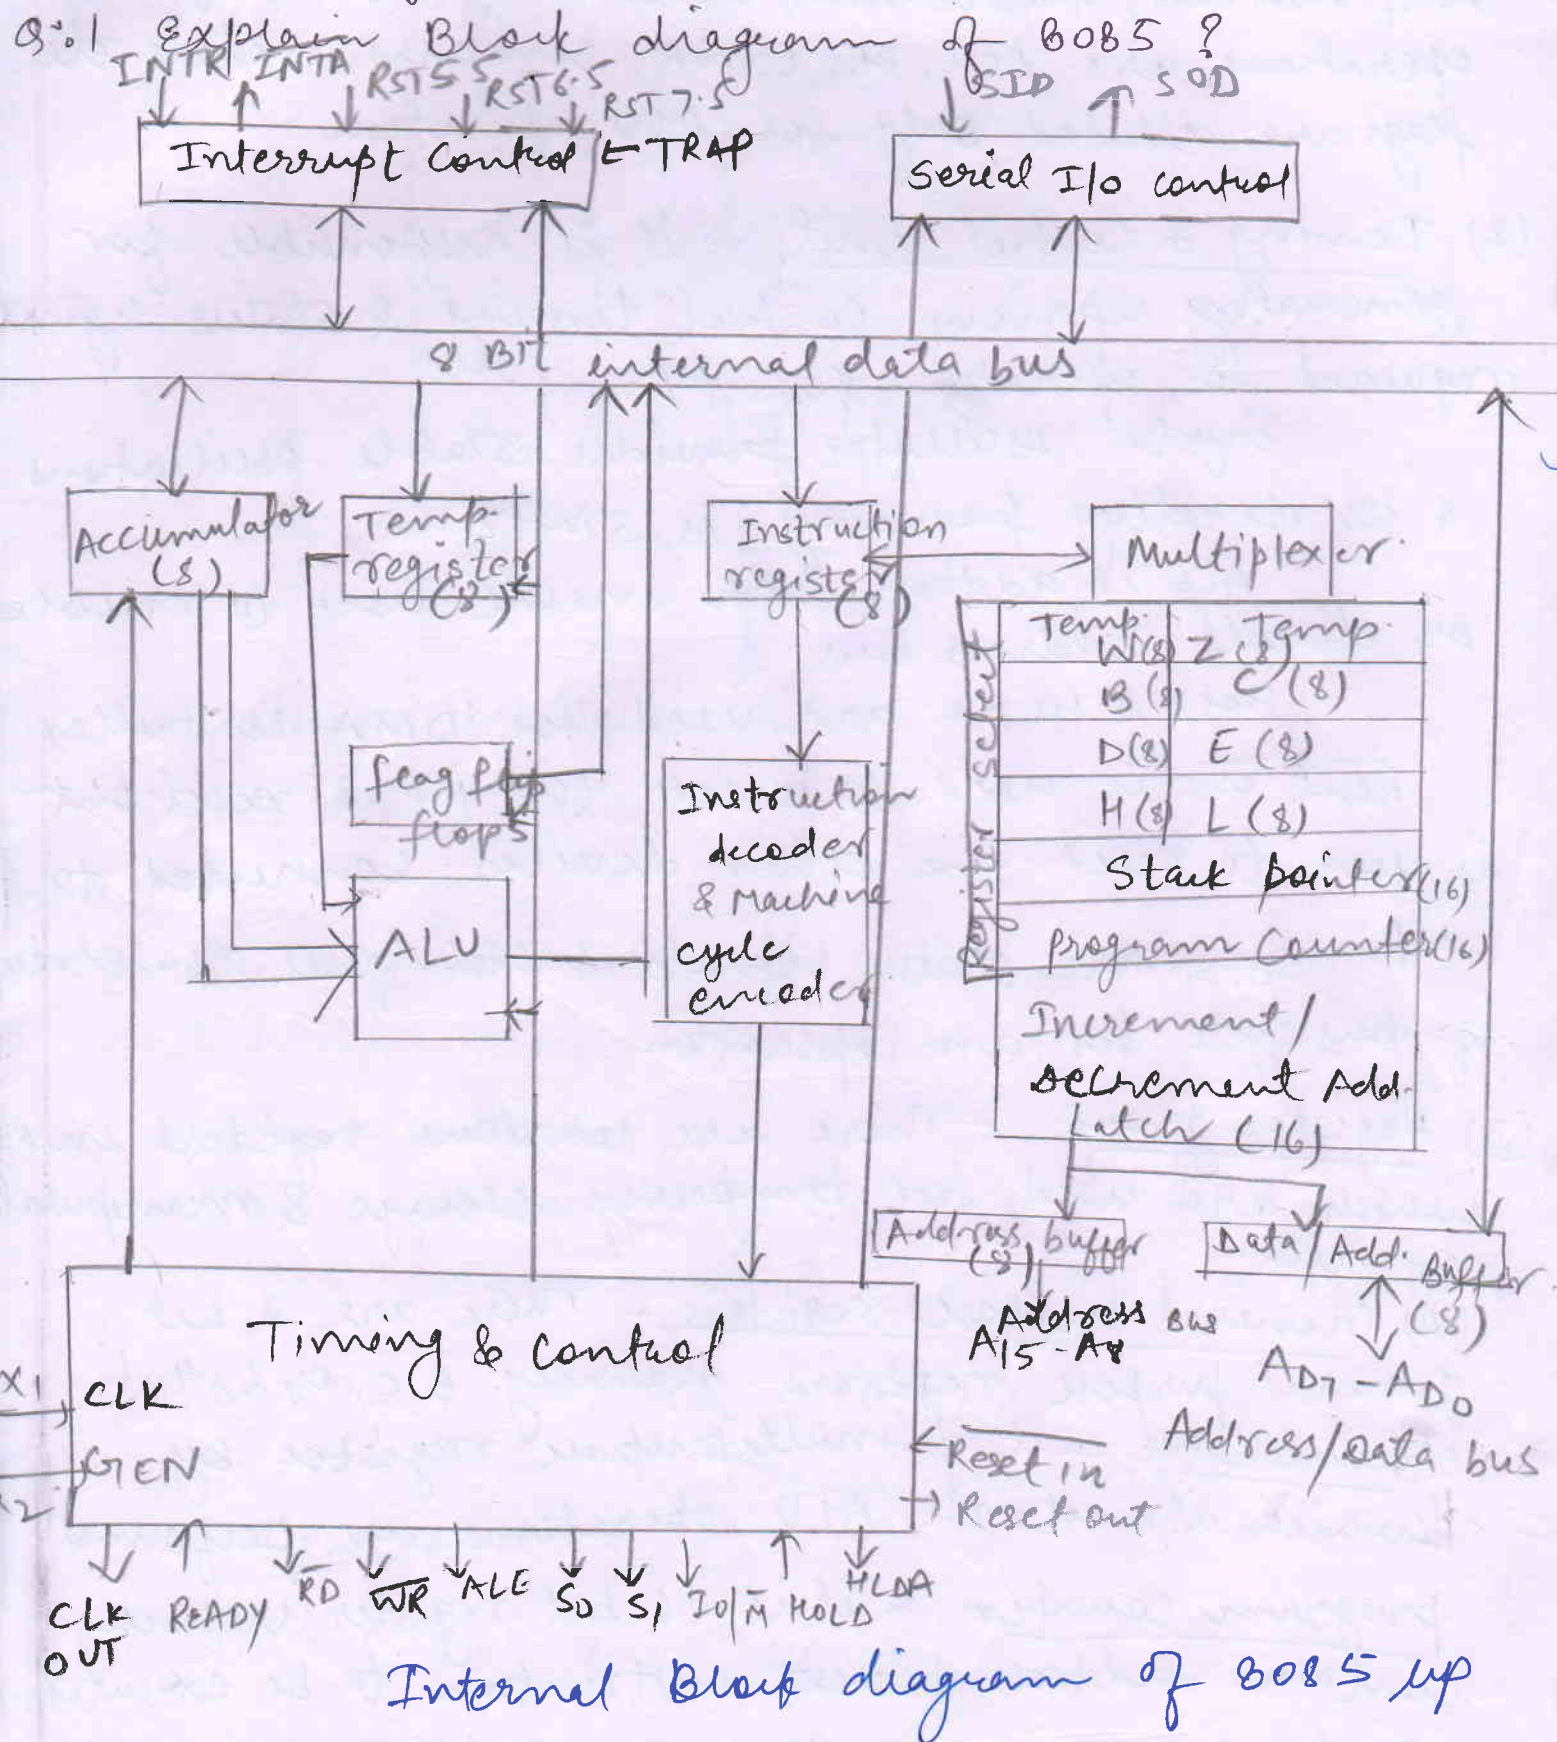 Q:1 Explain Block diagram of 8085 ?
INTR INTA RST 5.5 RST 6.5 RST 7.5
SID SOD
Interrupt Control
TRAP
Serial I/O control
8 BIT internal data bus
Accumulator
(8)
Temp.
register
(8)
Instruction
register
(8)
Multiplexer.
Register select
Temp. Temp.
W(8) Z(8)
B(8) C(8)
D(8) E(8)
H(8) L(8)
Stack pointer(16)
Program Counter(16)
Increment/
Decrement Add.
Latch (16)
flag flip
flops
ALU
Instruction
decoder
& Machine
cycle
encoder
Address buffer
(8)
Data/Add. Buffer
(8)
Address Bus
A15-A8
AD7-AD0
Address/Data bus
Timing & Control
X1
CLK
GEN
X2
Reset in
Reset out
CLK
OUT
READY
RD
WR
ALE
S0
S1
IO/M
HOLD
HLDA
Internal Block diagram of 8085 up